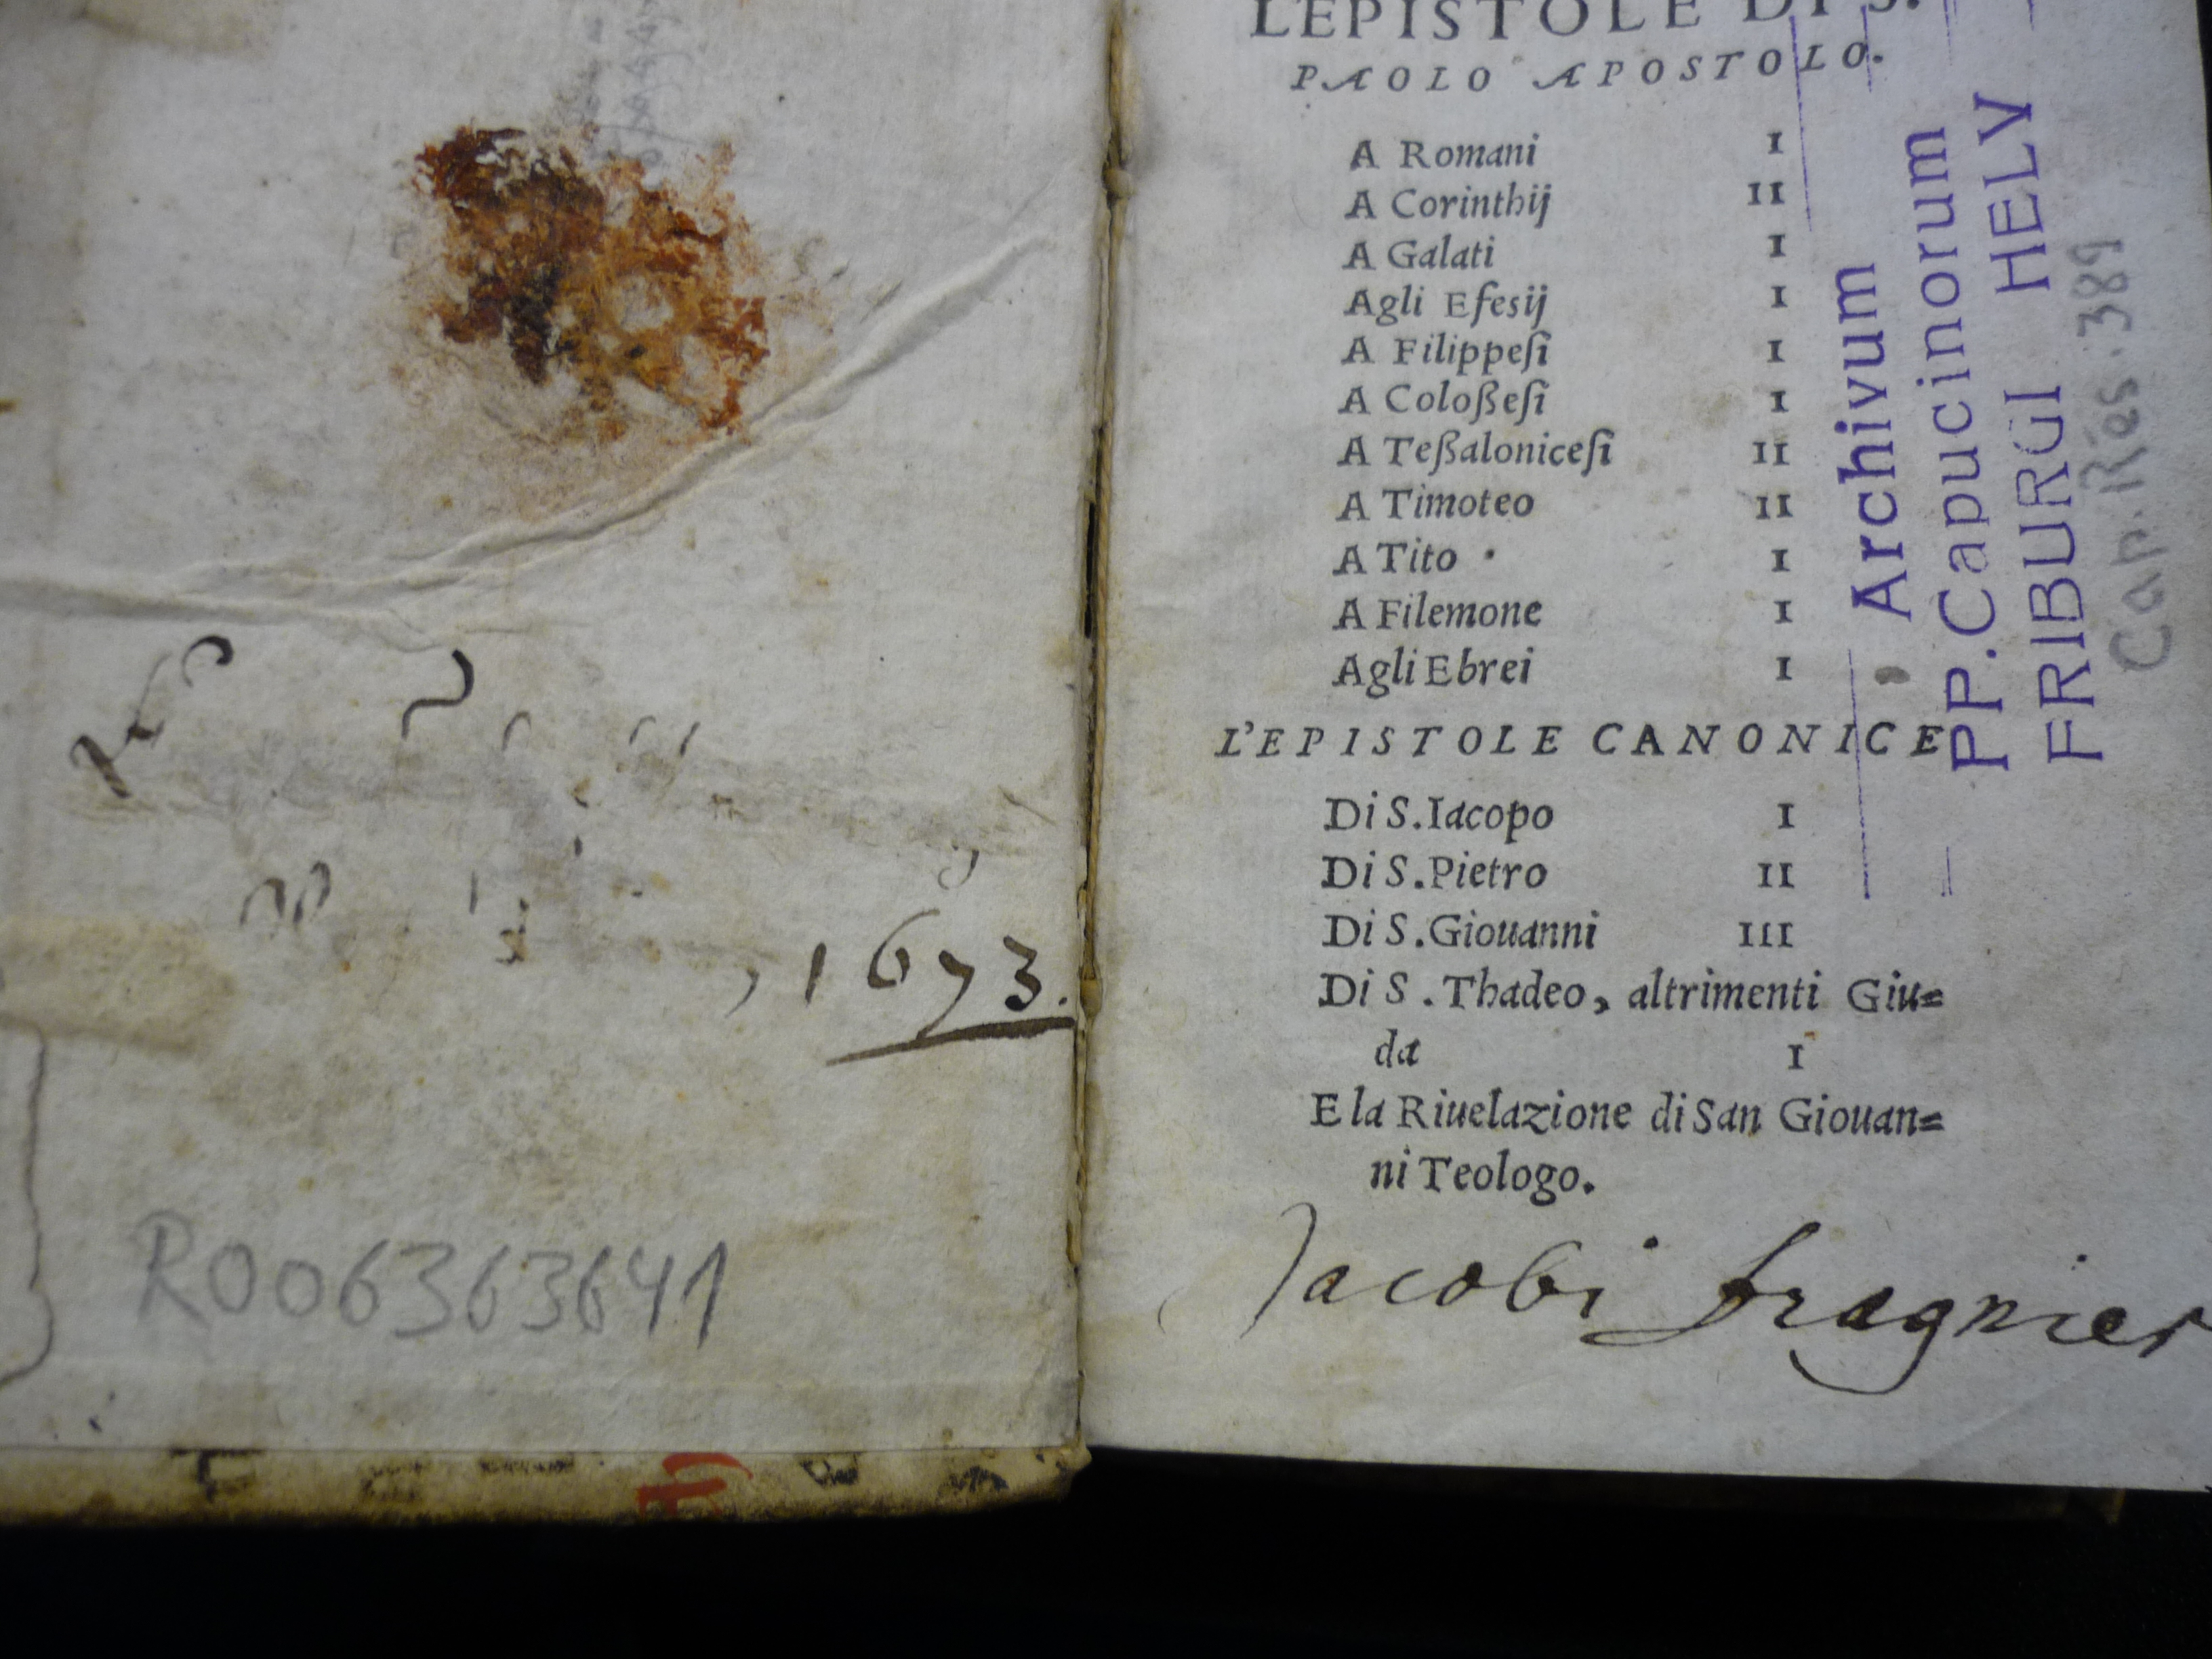 1673.
R006363641
L'EPISTOLE DI S.
PAOLO APOSTOLO.
A Romani I
A Corinthij II
A Galati I
Agli Efesij I
A Filippeſi I
A Coloßeſi I
A Teßaloniceſi II
A Timoteo II
A Tito I
A Filemone I
Agli Ebrei I
L'EPISTOLE CANONICE
Di S. Iacopo I
Di S. Pietro II
Di S. Giouanni III
Di S. Thadeo, altrimenti Giu=
da I
E la Riuelazione di San Giouan=
ni Teologo.
Jacobi fragnier
Archivum
PP. Capucinorum
FRIBURGI HELV
Cap. Rés. 389